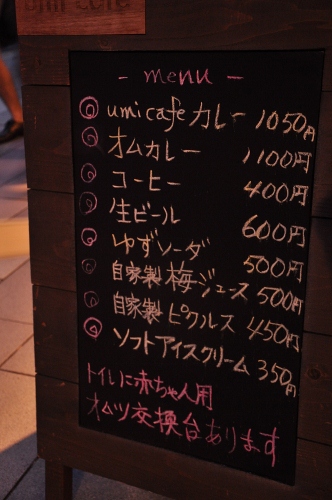 umi cafe
- menu -
umi cafe カレー 1050円
オムカレー 1100円
コーヒー 400円
生ビール 600円
ゆずソーダ 500円
自家製梅ジュース 500円
自家製ピクルス 450円
ソフトアイスクリーム 350円
トイレに赤ちゃん用
オムツ交換台あります